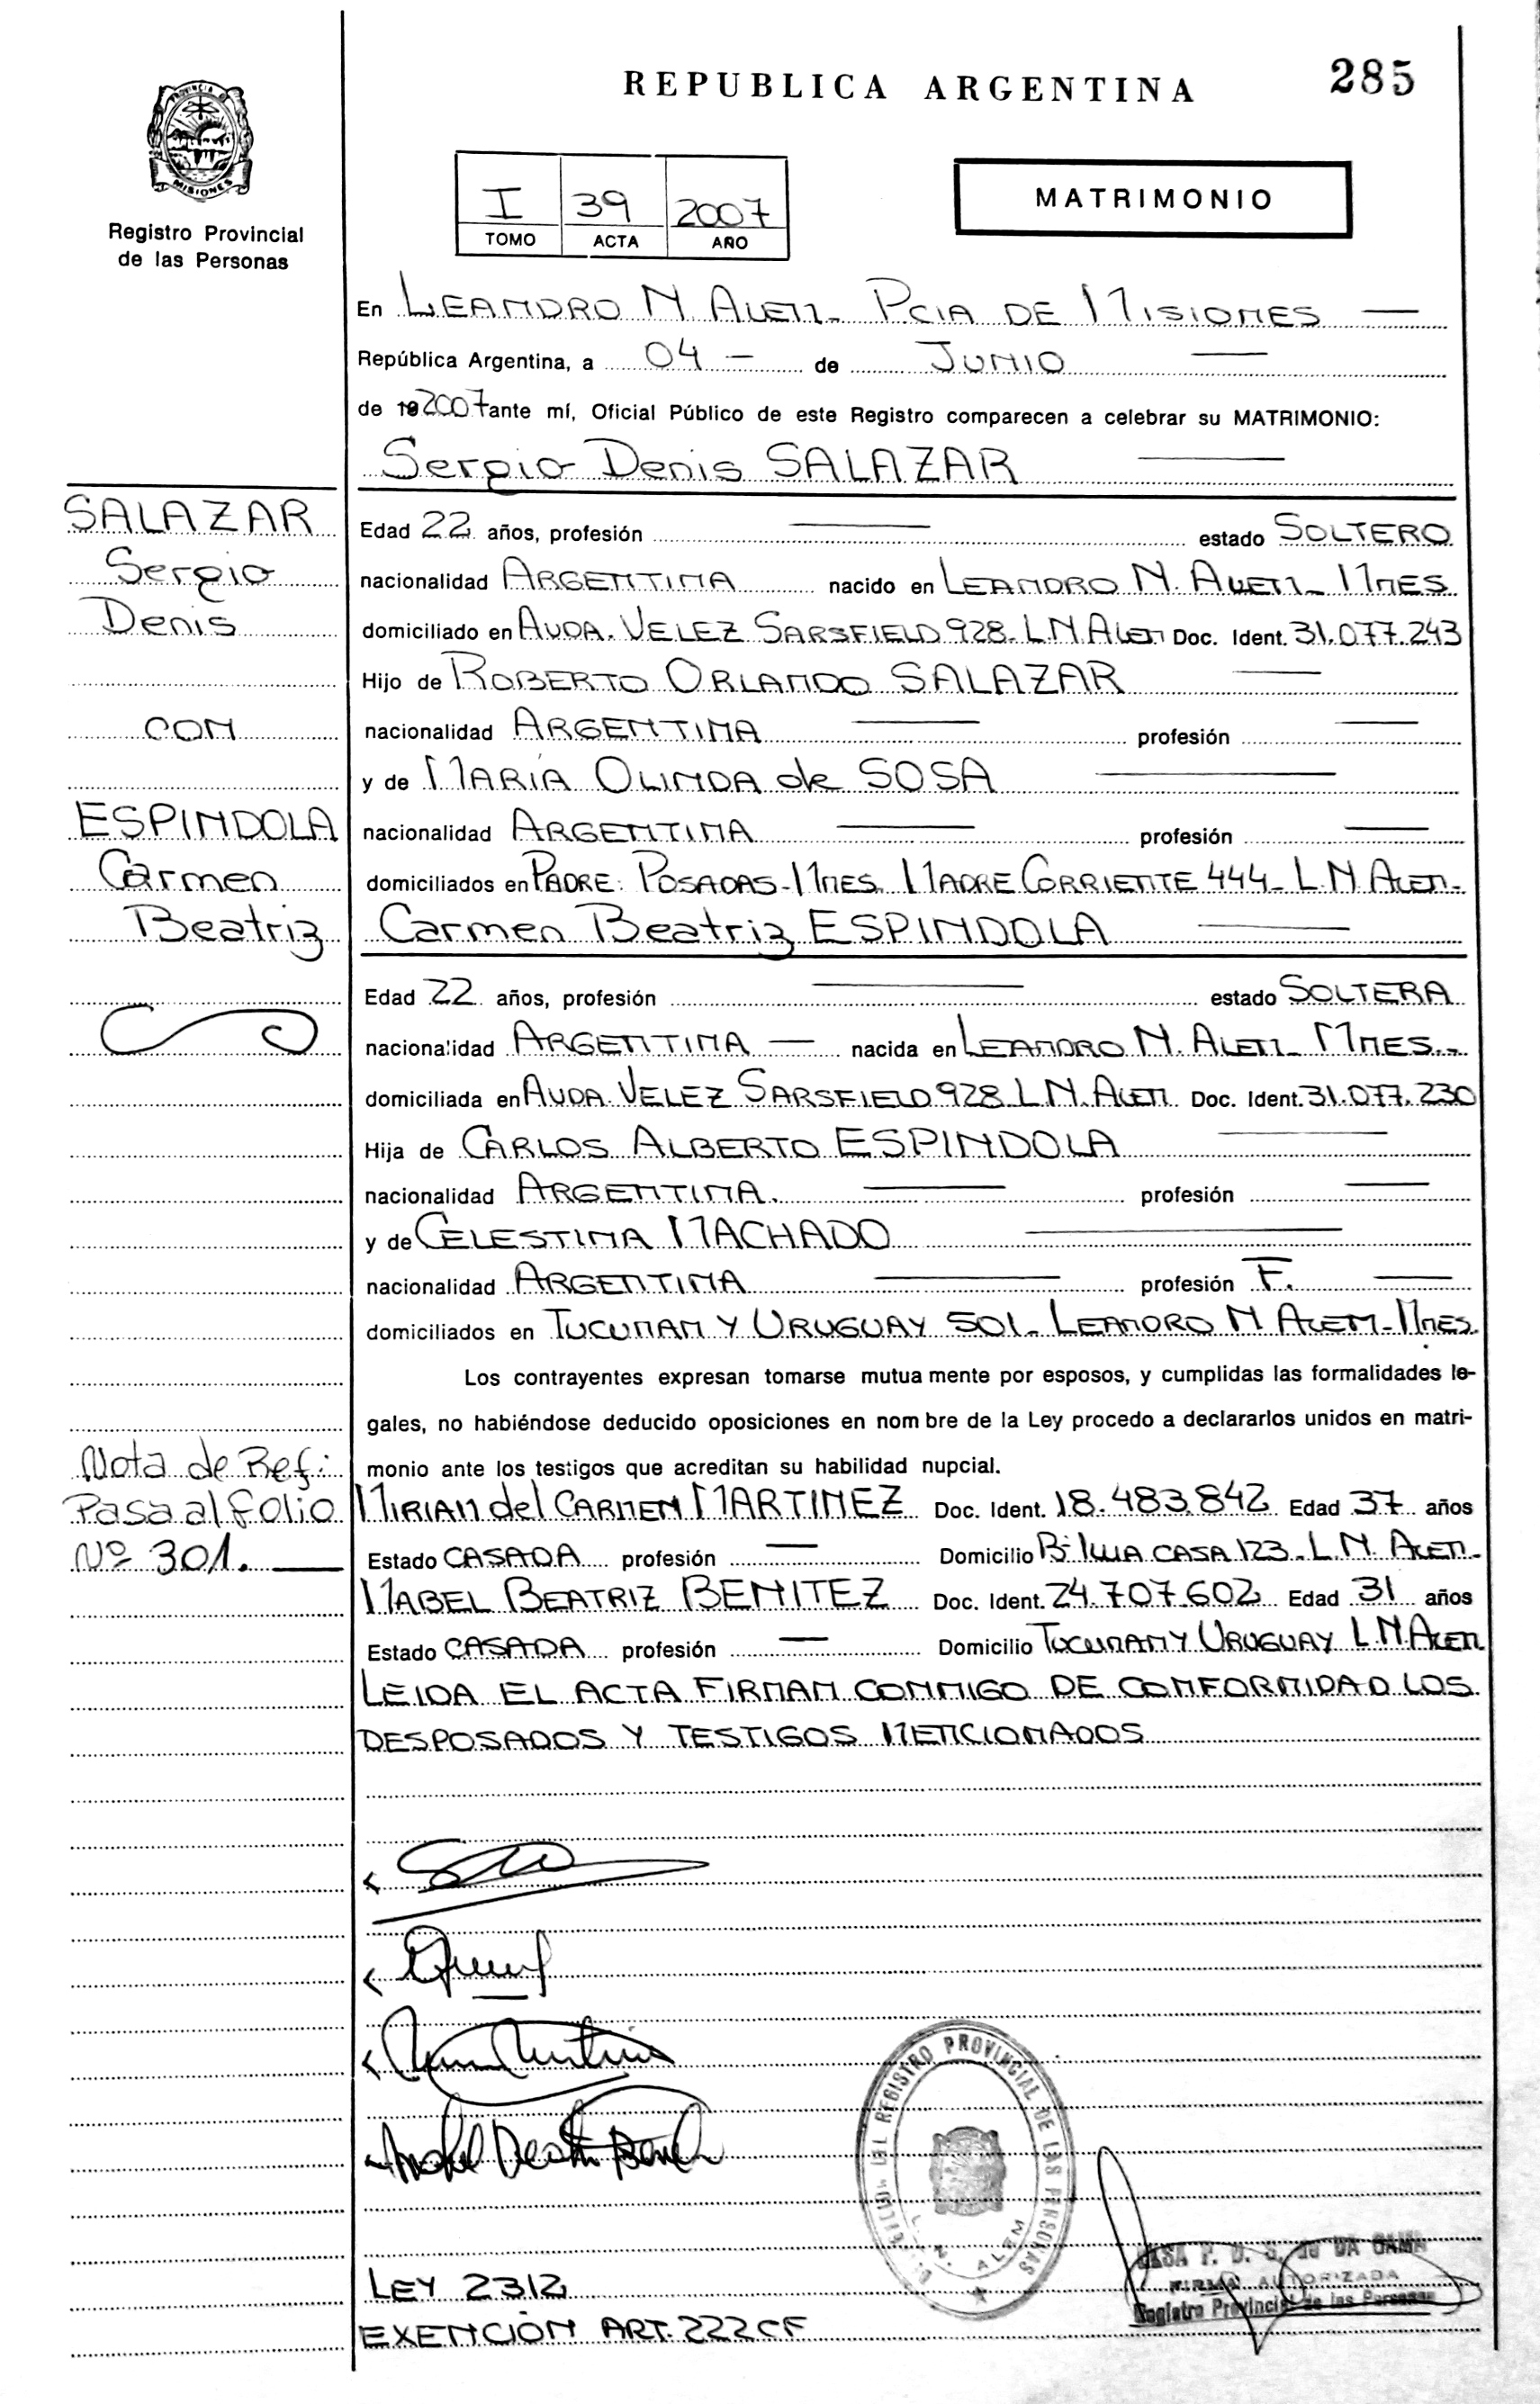 REPUBLICA ARGENTINA
285
PROVINCIA D
MISIONES
Registro Provincial
de las Personas
I 39 2007
TOMO ACTA AÑO
MATRIMONIO
En LEANDRO N. ALEM - PCIA DE MISIONES
República Argentina, a 04 - de JUNIO
de 192007 ante mí, Oficial Público de este Registro comparecen a celebrar su MATRIMONIO:
Sergio Denis SALAZAR
Edad 22 años, profesión estado SOLTERO
nacionalidad ARGENTINA nacido en LEANDRO N. ALEM - MNES.
domiciliado en AVDA. VELEZ SARSFIELD 928 - L.N. ALEM Doc. Ident. 31.077.243
Hijo de ROBERTO ORLANDO SALAZAR
nacionalidad ARGENTINA profesión
y de MARÍA OLINDA de SOSA
nacionalidad ARGENTINA profesión
domiciliados en PADRE: POSADAS - MNES. MADRE CORRIENTE 444 - L.N. ALEM -
Carmen Beatriz ESPINDOLA
Edad 22 años, profesión estado SOLTERA
nacionalidad ARGENTINA - nacida en LEANDRO N. ALEM - MNES. -
domiciliada en AVDA. VELEZ SARSFIELD 928 L.N. ALEM Doc. Ident. 31.077.230
Hija de CARLOS ALBERTO ESPINDOLA
nacionalidad ARGENTINA. profesión
y de CELESTINA MACHADO
nacionalidad ARGENTINA profesión F.
domiciliados en TUCUMAN Y URUGUAY 501 - LEANDRO N ALEM - MNES.
Los contrayentes expresan tomarse mutua mente por esposos, y cumplidas las formalidades le-
gales, no habiéndose deducido oposiciones en nom bre de la Ley procedo a declararlos unidos en matri-
monio ante los testigos que acreditan su habilidad nupcial.
MIRIAN del CARMEN MARTINEZ Doc. Ident. 18.483.842 Edad 37 años
Estado CASADA profesión Domicilio CASA 123 - L.N. ALEM -
MABEL BEATRIZ BENITEZ Doc. Ident. 24.707.602 Edad 31 años
Estado CASADA profesión Domicilio TUCUMAN Y URUGUAY L.N. ALEM
LEIDA EL ACTA FIRMAN CONMIGO DE CONFORMIDAD LOS
DESPOSADOS Y TESTIGOS MENCIONADOS
LEY 2312
EXENCIÓN ART. 222 CF
SALAZAR
Sergio
Denis
CON
ESPINDOLA
Carmen
Beatriz
Nota de Ref:
Pasa al folio
Nº 301.
DEL REGISTRO PROVINCIAL DE LAS PERSONAS
L. N. ALEM
de DA GAMA
FIRMA AUTORIZADA
Registro Provincial de las Personas